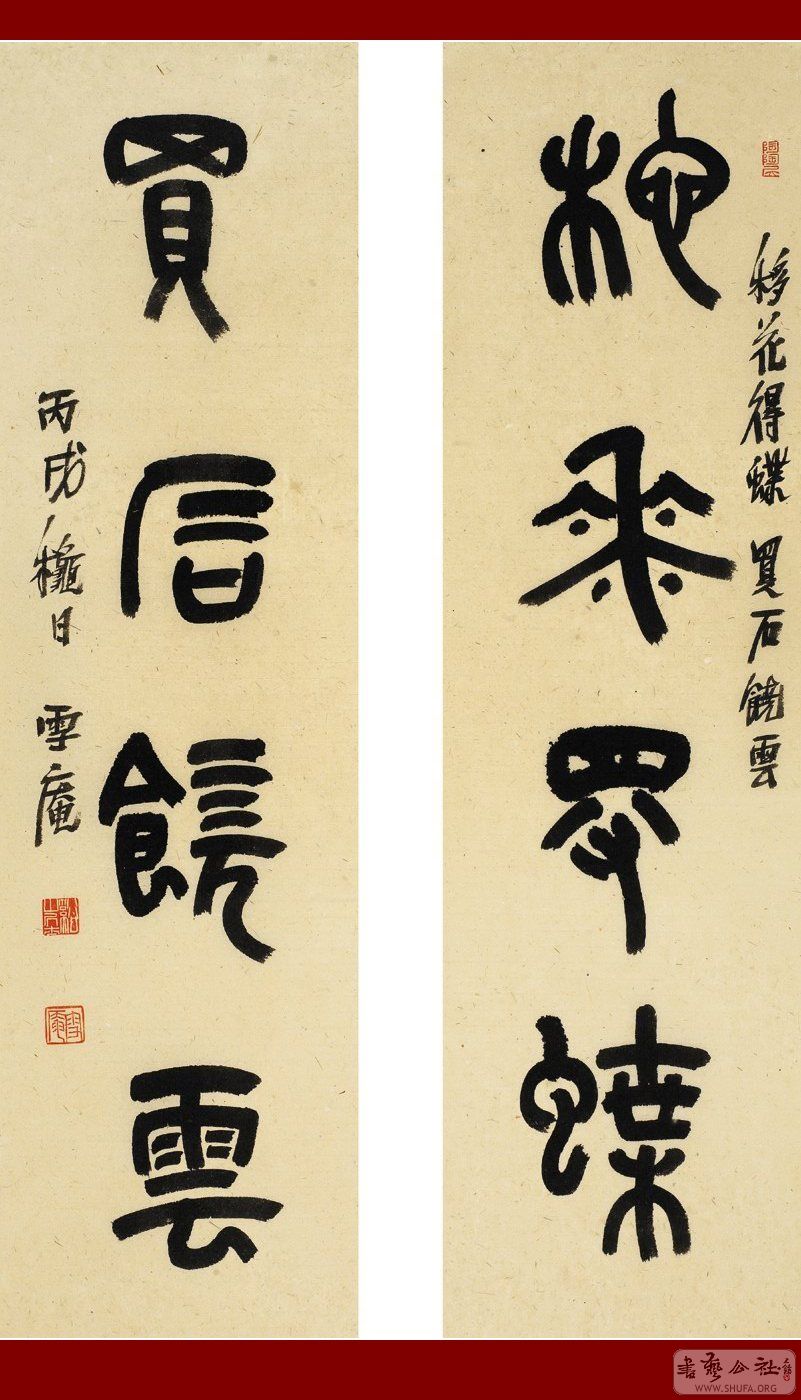 移花得蝶 買石饒雲
移花得蝶
買石饒雲
丙戌龝日 雪庵
書藝公社
WWW.SHUFA.ORG